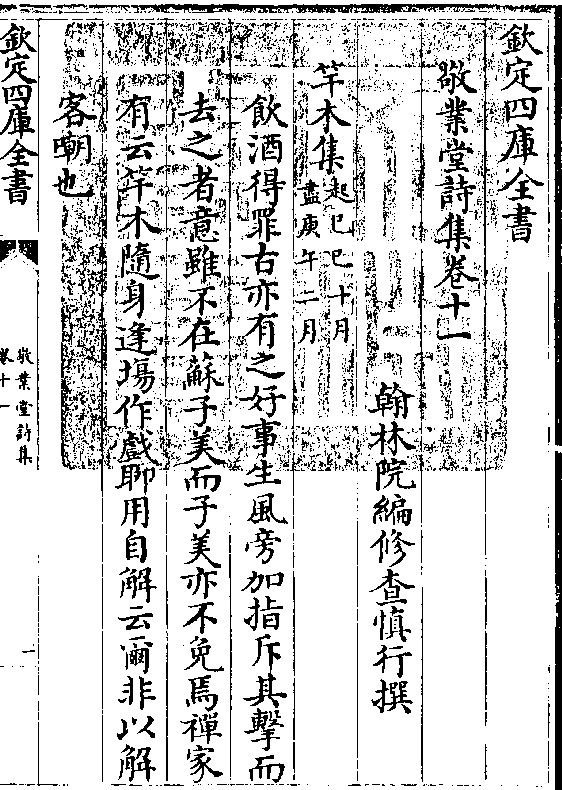 欽定四庫全書
敬業堂詩集卷十一
翰林院編修查慎行撰
竿木集起己巳十月
盡庚午二月
飲酒得罪古亦有之好事生風旁加指斥其擊而
去之者意雖不在蘇子美而子美亦不免焉禪家
有云竿木隨身逢場作戲聊用自解云爾非以解
客嘲也
欽定四庫全書
敬業堂詩集
卷十一
一